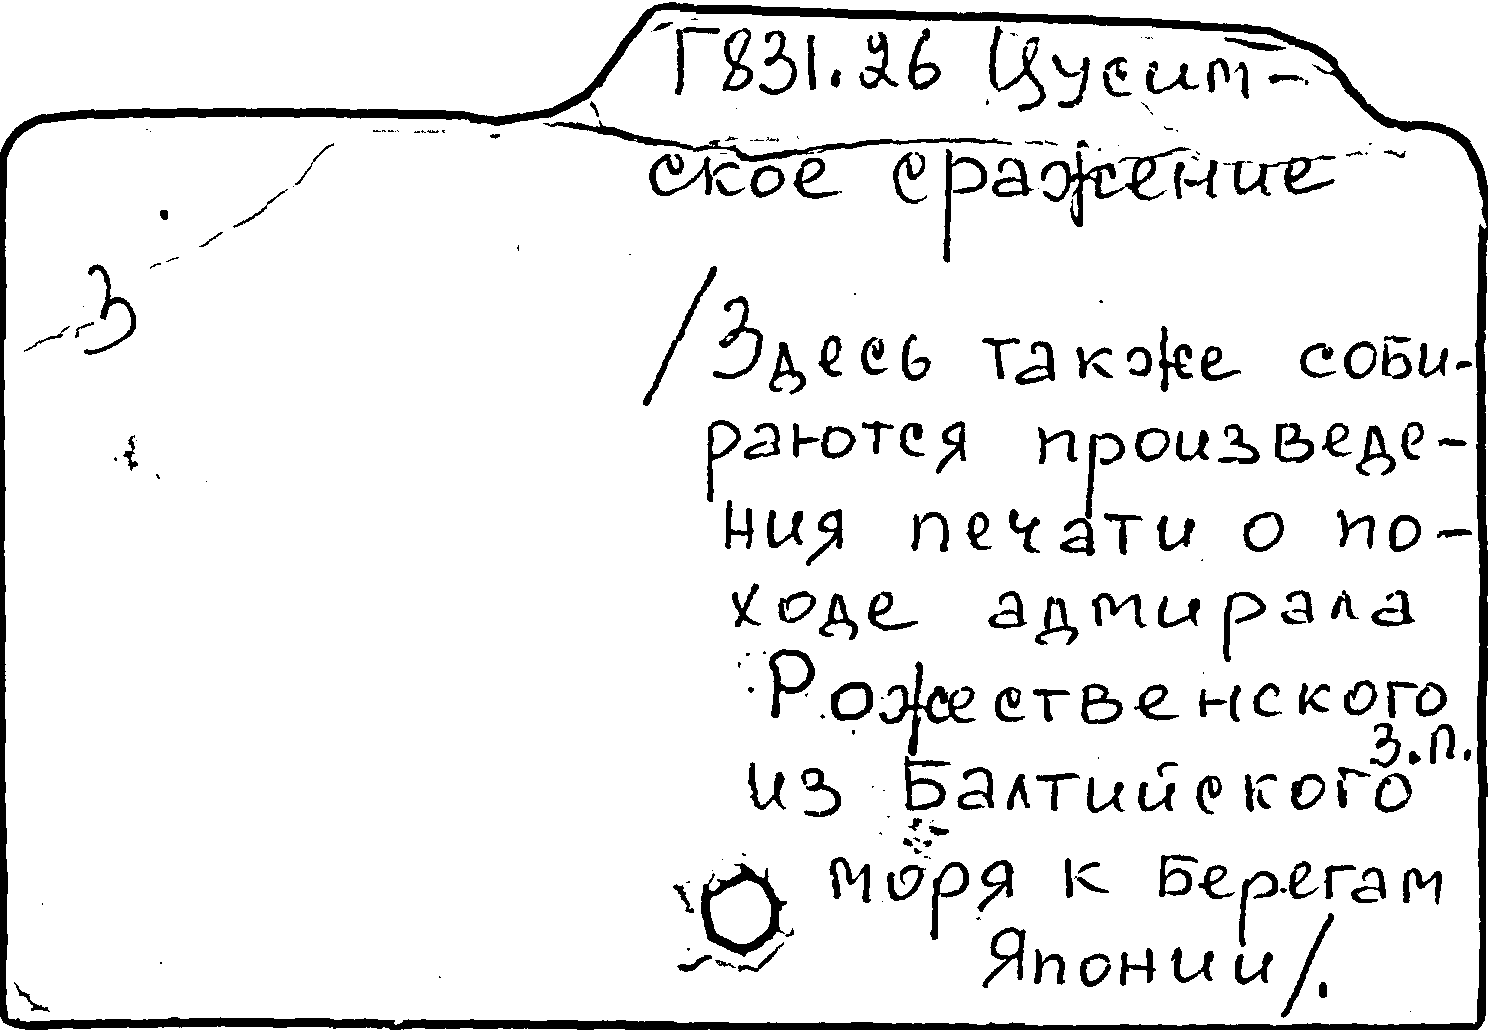 Г831.26 Цусим-
ское сражение
3
/Здесь также соби-
раются произведе-
ния печати о по-
ходе адмирала
Рожественского
з.п.
из Балтийского
моря к берегам
Японии/.